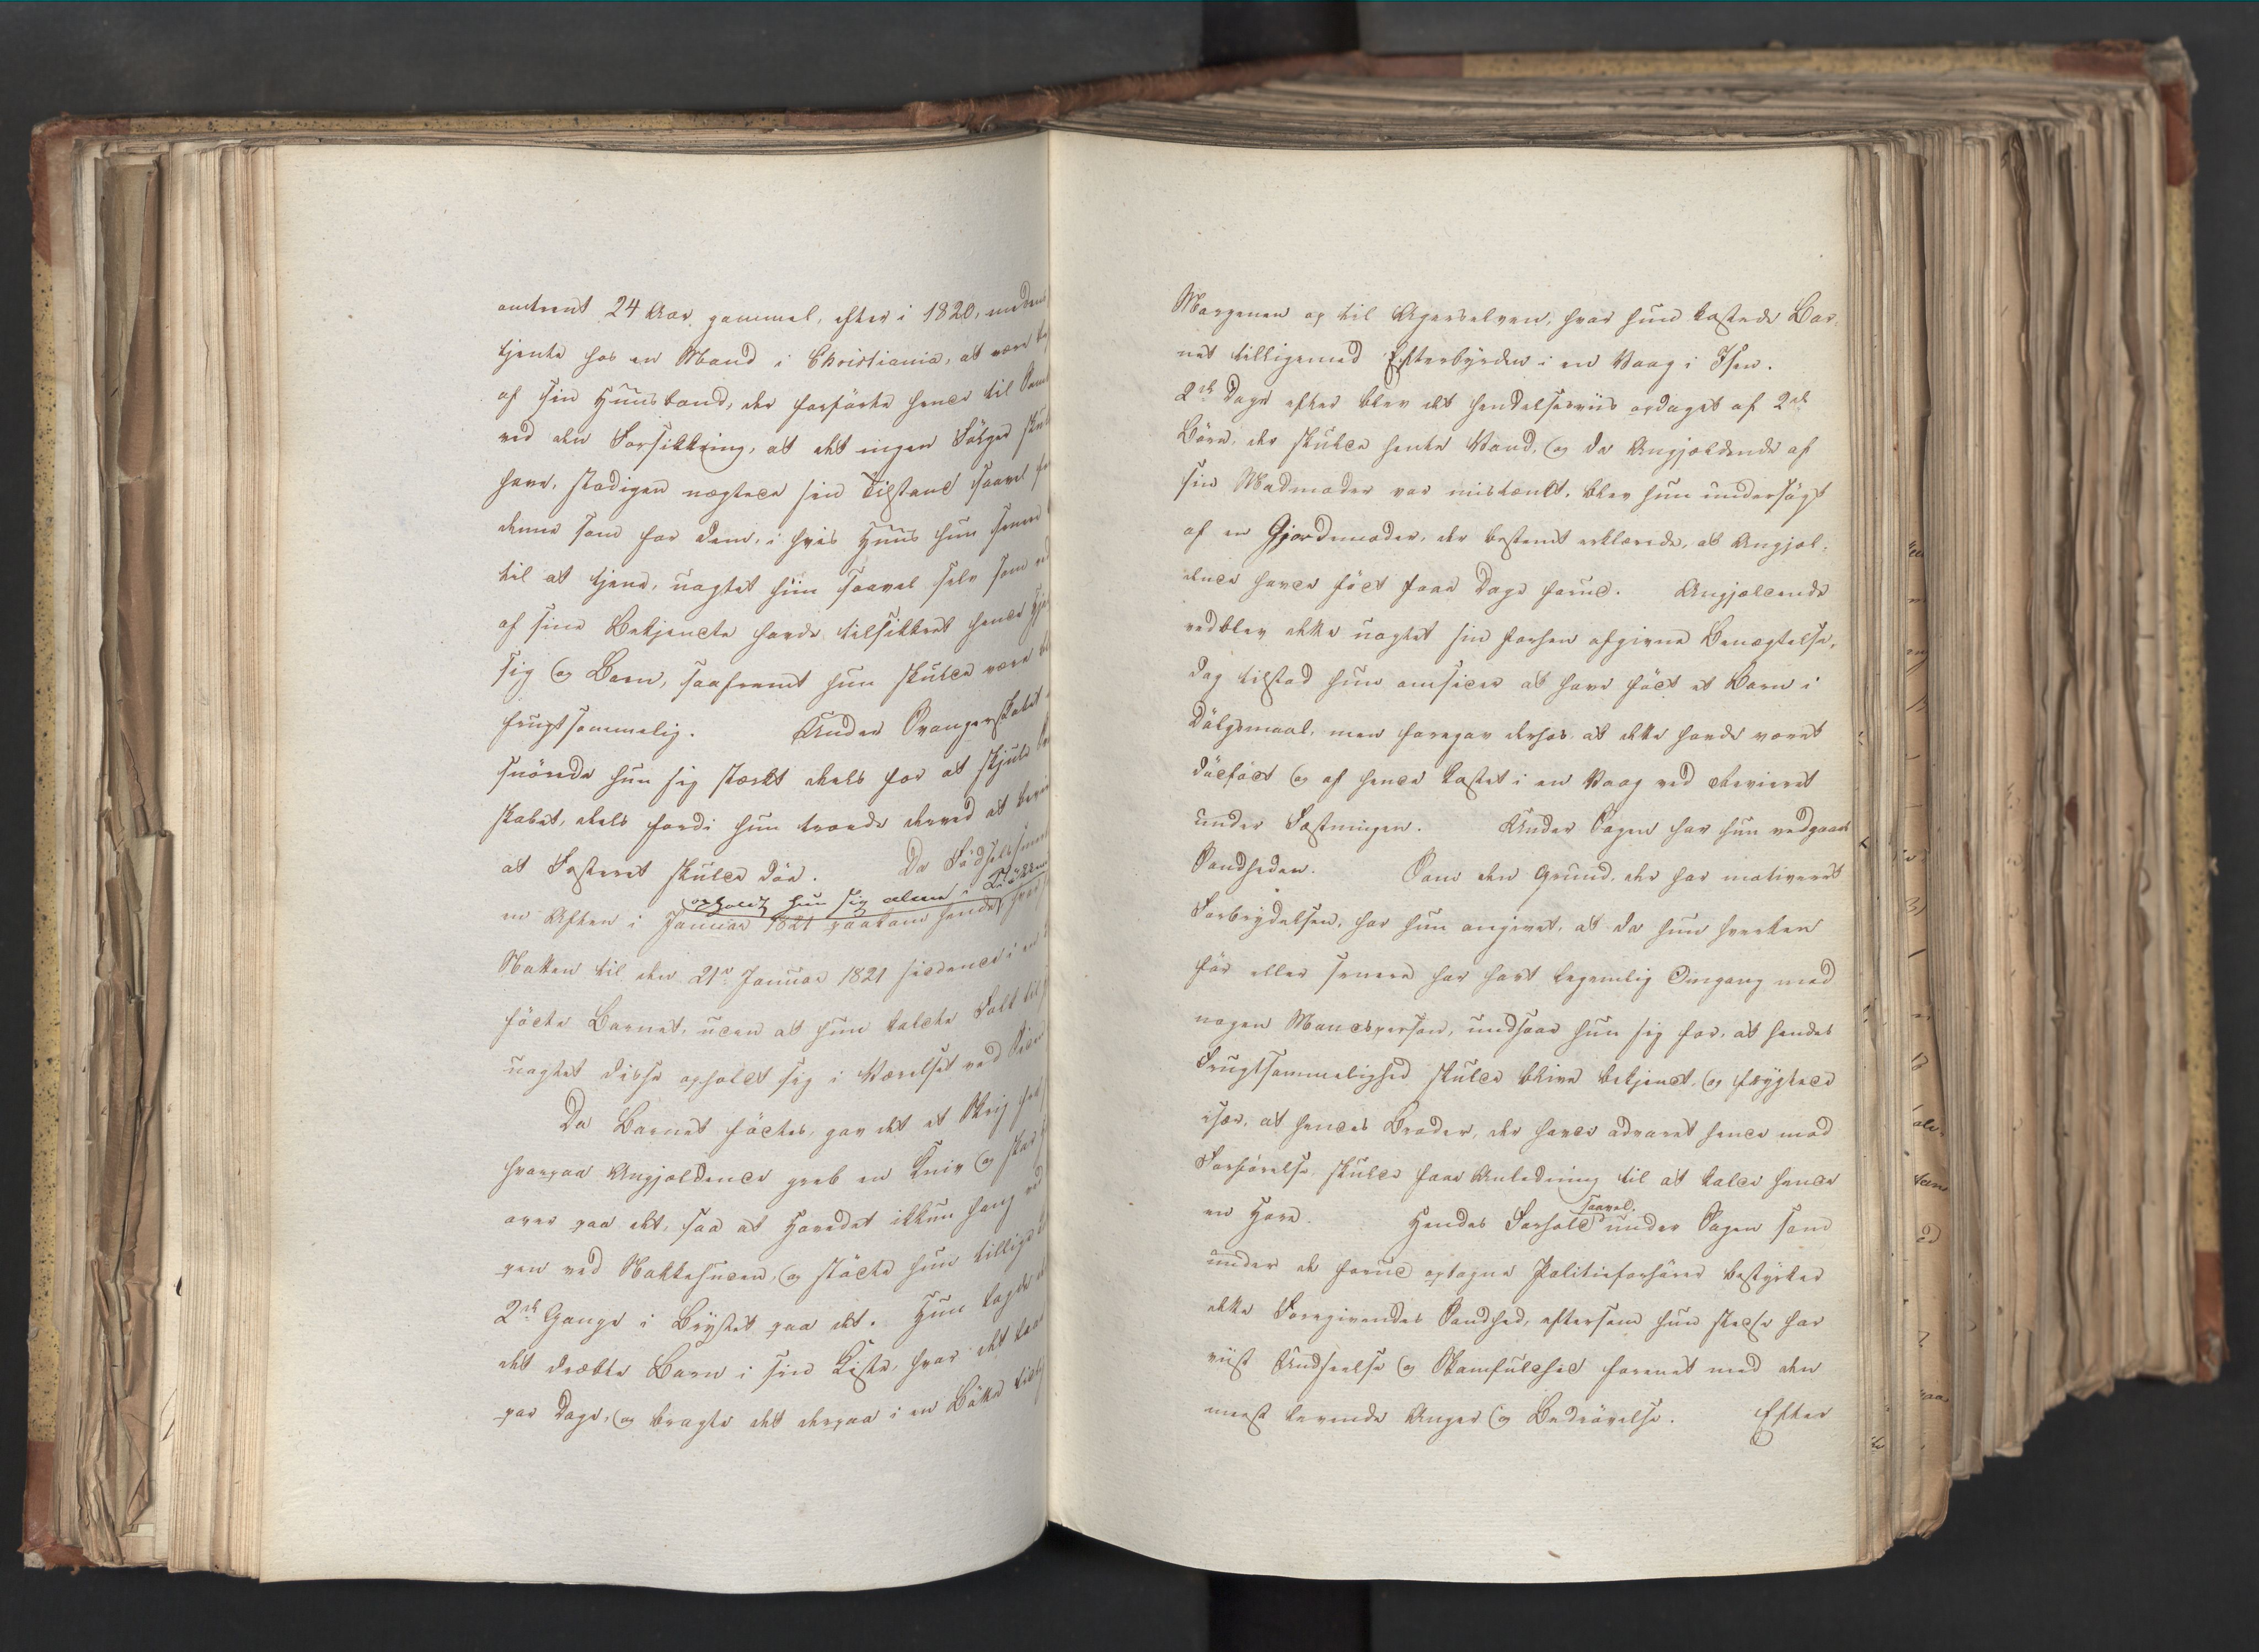 omtrent 24 Aar gammel, efter i 1820, medens
tjente hos en Mand i Christiania, at være
af sin Huusbond, der forførte hende til
ved den Forsikkring, at det ingen Følger
have, stadigen nægtede sin Tilstand saavel
denne som for dem, i hvis Huus hun senere
til at tjene, uagtet hun saavel selv som ved
af sine Bekjendte havde tilsikkret hende
sig og Barn, saafremt hun skulde være
frugtsommelig. Under Svangerskabet
snörede hun sig stærkt deels for at skjule
skabet, deels fordi hun troede derved at
at Fosteret skulde döe. Da Födselssmerterne
opholdt hun sig alene i
en Aften i Januar 1821 paakom hende
Natten til den 21de Januar 1821 siddende i en
födte Barnet, uden at hun kaldte Folk til
uagtet disse opholdt sig i Værelset ved Siden
Da Barnet födtes, gav det et Skrig
hvorpaa Angjeldende greb en Kniv og skar
over paa det, saa at Hovedet ikkun hang
pen ved Nakkehuden, og stödte hun tillige
2de Gange i Brystet paa det. Hun lagde
det dræbte Barn i sin Kiste, hvor det laae
par Dage, og bragte det derpaa i en Bötte
Morgenen op til Agerselven, hvor hun kastede Bar-
net tilligemed Efterbyrden i en Vaag i Isen.
2de Dage efter blev det hendelsesviis opdaget af 2de
Börn, der skulde hente Vand, og da Angjeldende af
sin Madmoder var mistænkt, blev hun undersögt
af en Gjordemoder, der bestemt erklærede, at Angjel-
dende havde födt faae Dage forud. Angjeldende
vedblev ikke uagtet sin forhen afgivne Benægtelse,
dog tilstod hun omsider at have födt et Barn i
Dölgsmaal, men foregav derhos at dette havde været
dödfödt og af hende kastet i en Vaag ved
under Fæstningen. Under Sagen har hun vedgaaet
Sandheden. Som den Grund, der har motiveret
Forbrydelsen, har hun angivet, at da hun hverken
för eller senere har havt legemlig Omgang med
nogen Mandsperson, undsaae hun sig for, at hendes
Frugtsommelighed skulde blive bekjendt, og frygtede
især, at hendes Broder, der havde advaret hende mod
Forförelse, skulde faae Anledning til at kalde hende
en Hore. Hendes Forhold saavel under Sagen som
under de forud optagne Politieforhörer bestyrker
dette Foregivendes Sandhed, eftersom hun stedse har
viist Undseelse og Skamfuldhed forenet med den
meest levende Anger og Bedrövelse. Efter